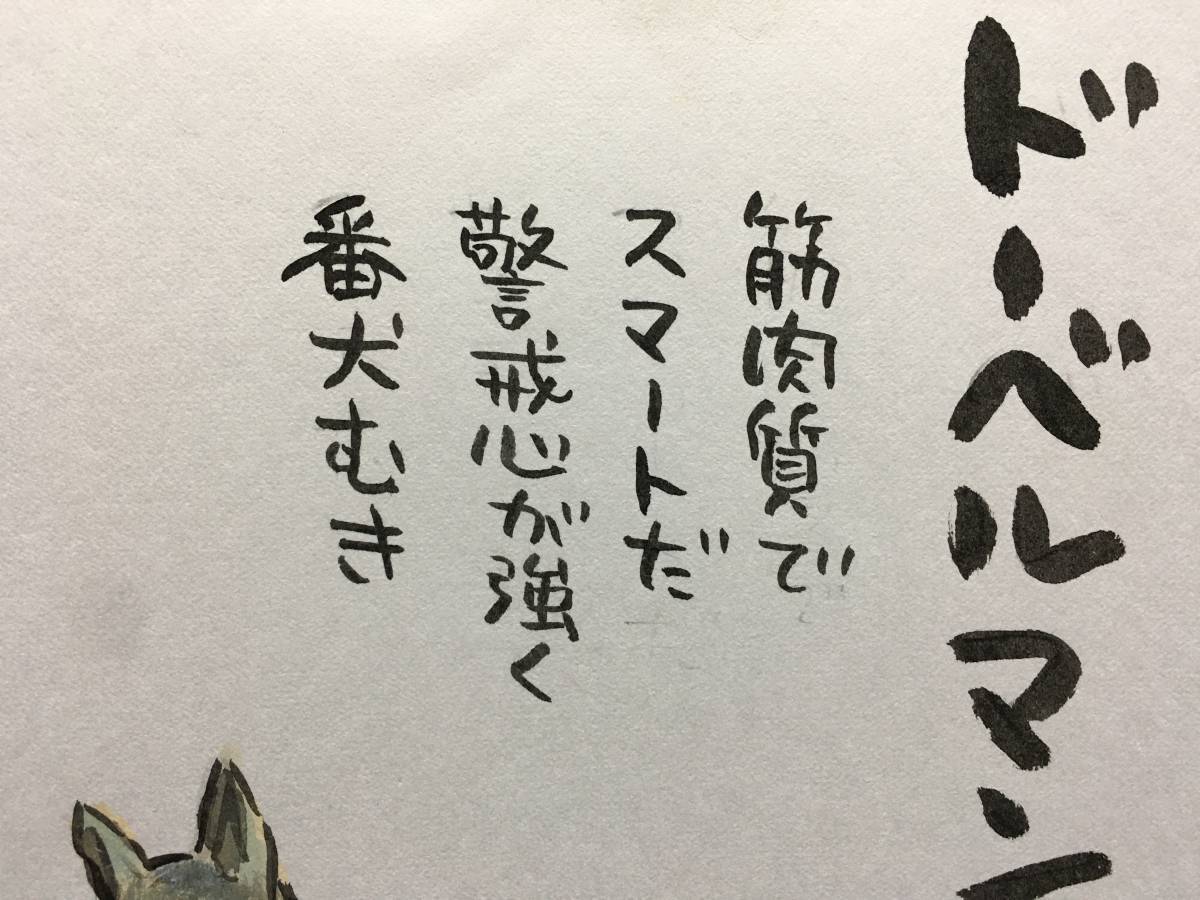 ドーベルマン
筋肉質で
スマートだ
警戒心が強く
番犬むき